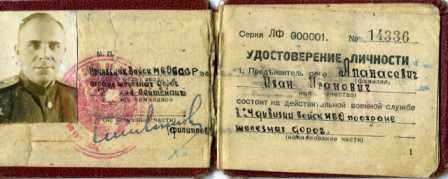 М. П.
Начальник Войск МВД СССР
охране железных дорог
ген. лейтенант
(Филиппов)
Серия ЛФ 000001. № 14336
УДОСТОВЕРЕНИЕ ЛИЧНОСТИ
1. Предъявитель сего Апанасович
(фамилия,
Иван Иванович
состоит на действительной военной службе
в 4 дивизии Войск МВД по охране
железных дорог.
(наименование части)
1